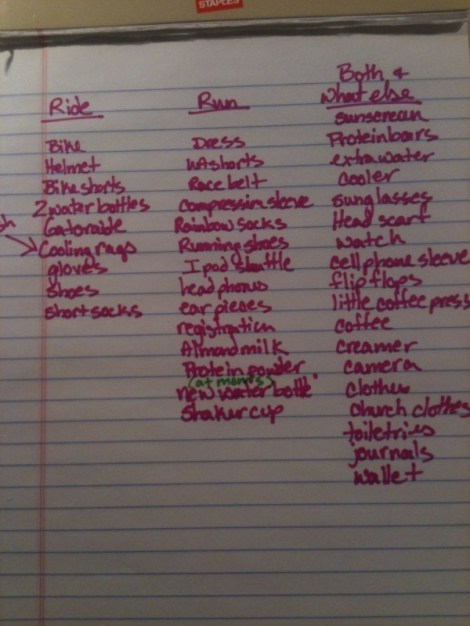 STAPLES
Ride
Bike
Helmet
Bike shorts
2 water bottles
Gatoraide
Cooling rags
gloves
shoes
short socks
Run
Dress
shorts
Race belt
compression sleeve
Rainbow socks
Running shoes
Ipod shuttle
headphones
ear pieces
registration
Almond milk
Protein powder
(at mom's)
new water bottle
Shaker cup
Both &
What else
sunscrean
Protein bars
extra water
cooler
sunglasses
Head scarf
watch
cell phone sleeve
flip flops
little coffee press
coffee
creamer
camera
clothes
church clothes
toiletries
journals
wallet